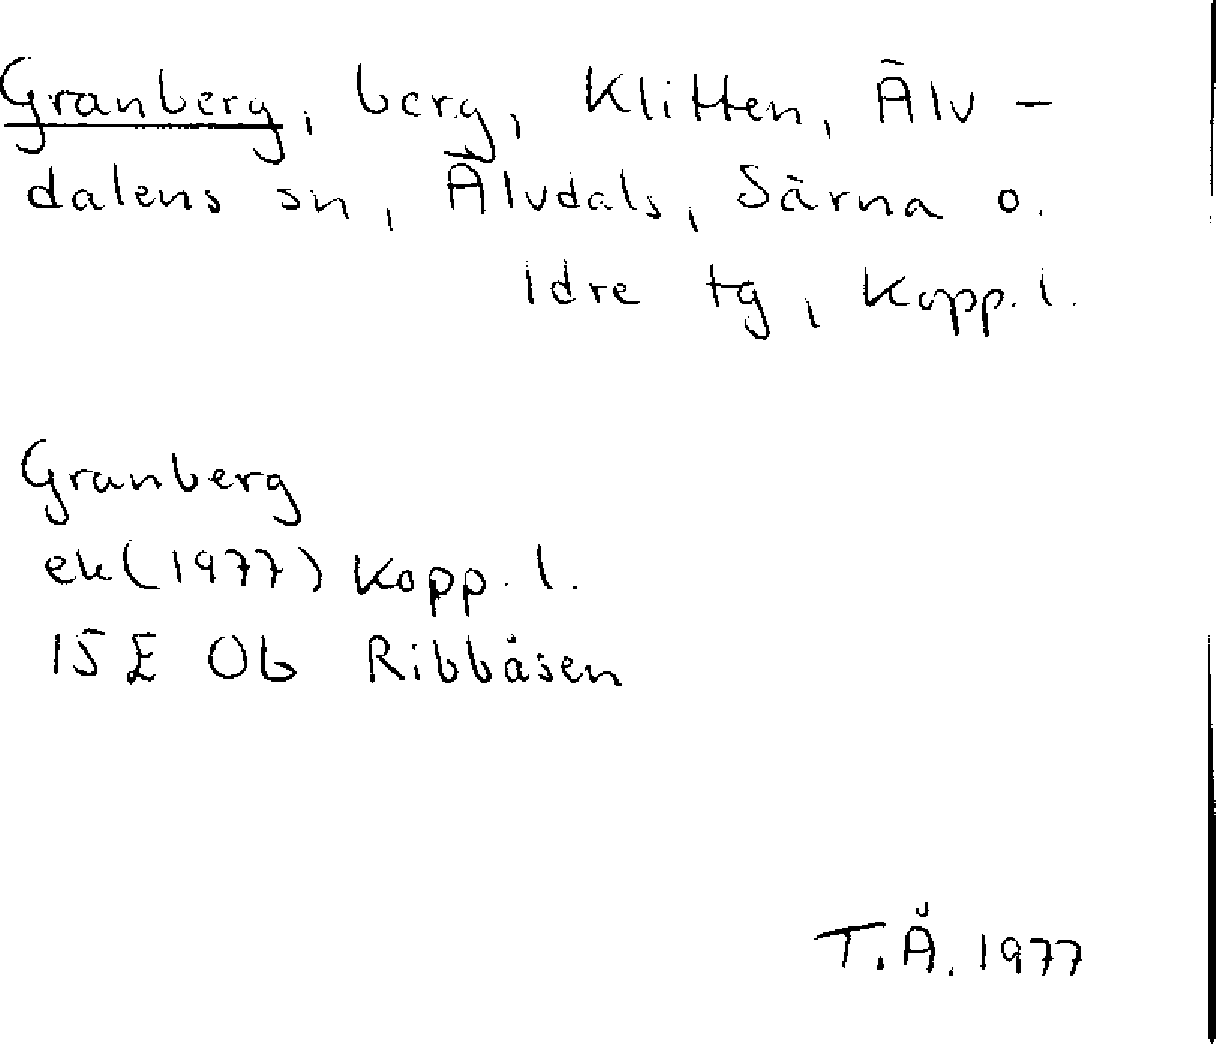 Granberg, berg, Klitten, Älv-
dalens sn, Älvdals, Särna o.
Idre tg, Kopp. l.
Granberg
ek (1977) Kopp. l.
15 E 0b Ribbåsen
T.Å. 1977